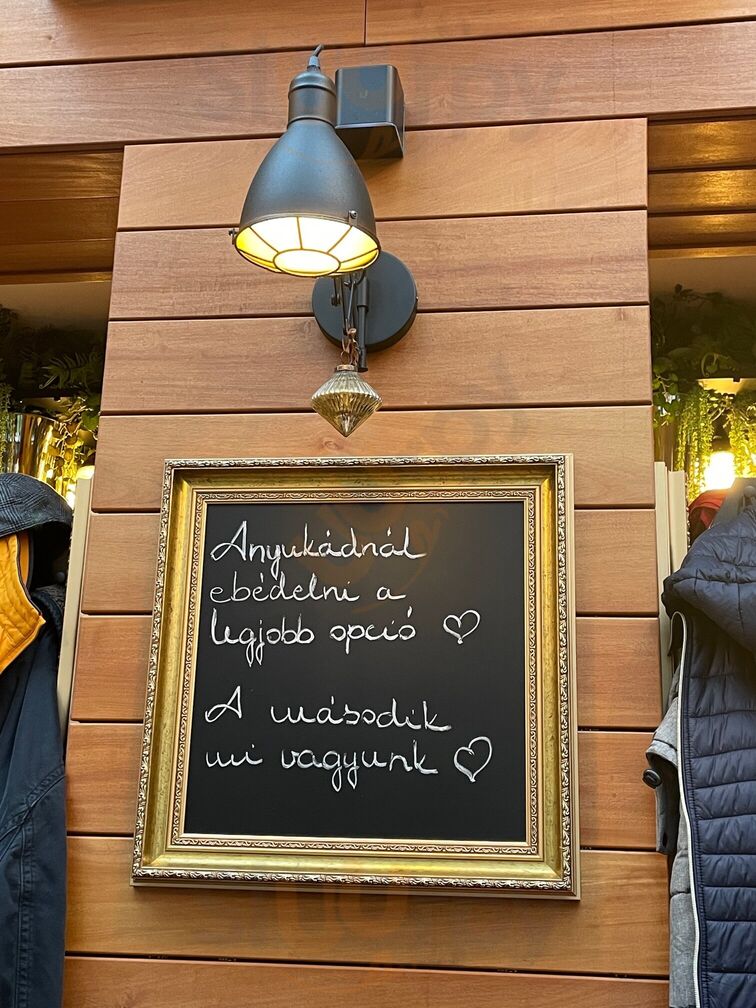 Anyukádnál
ebédelni a
legjobb opció ♡
A második
mi vagyunk ♡